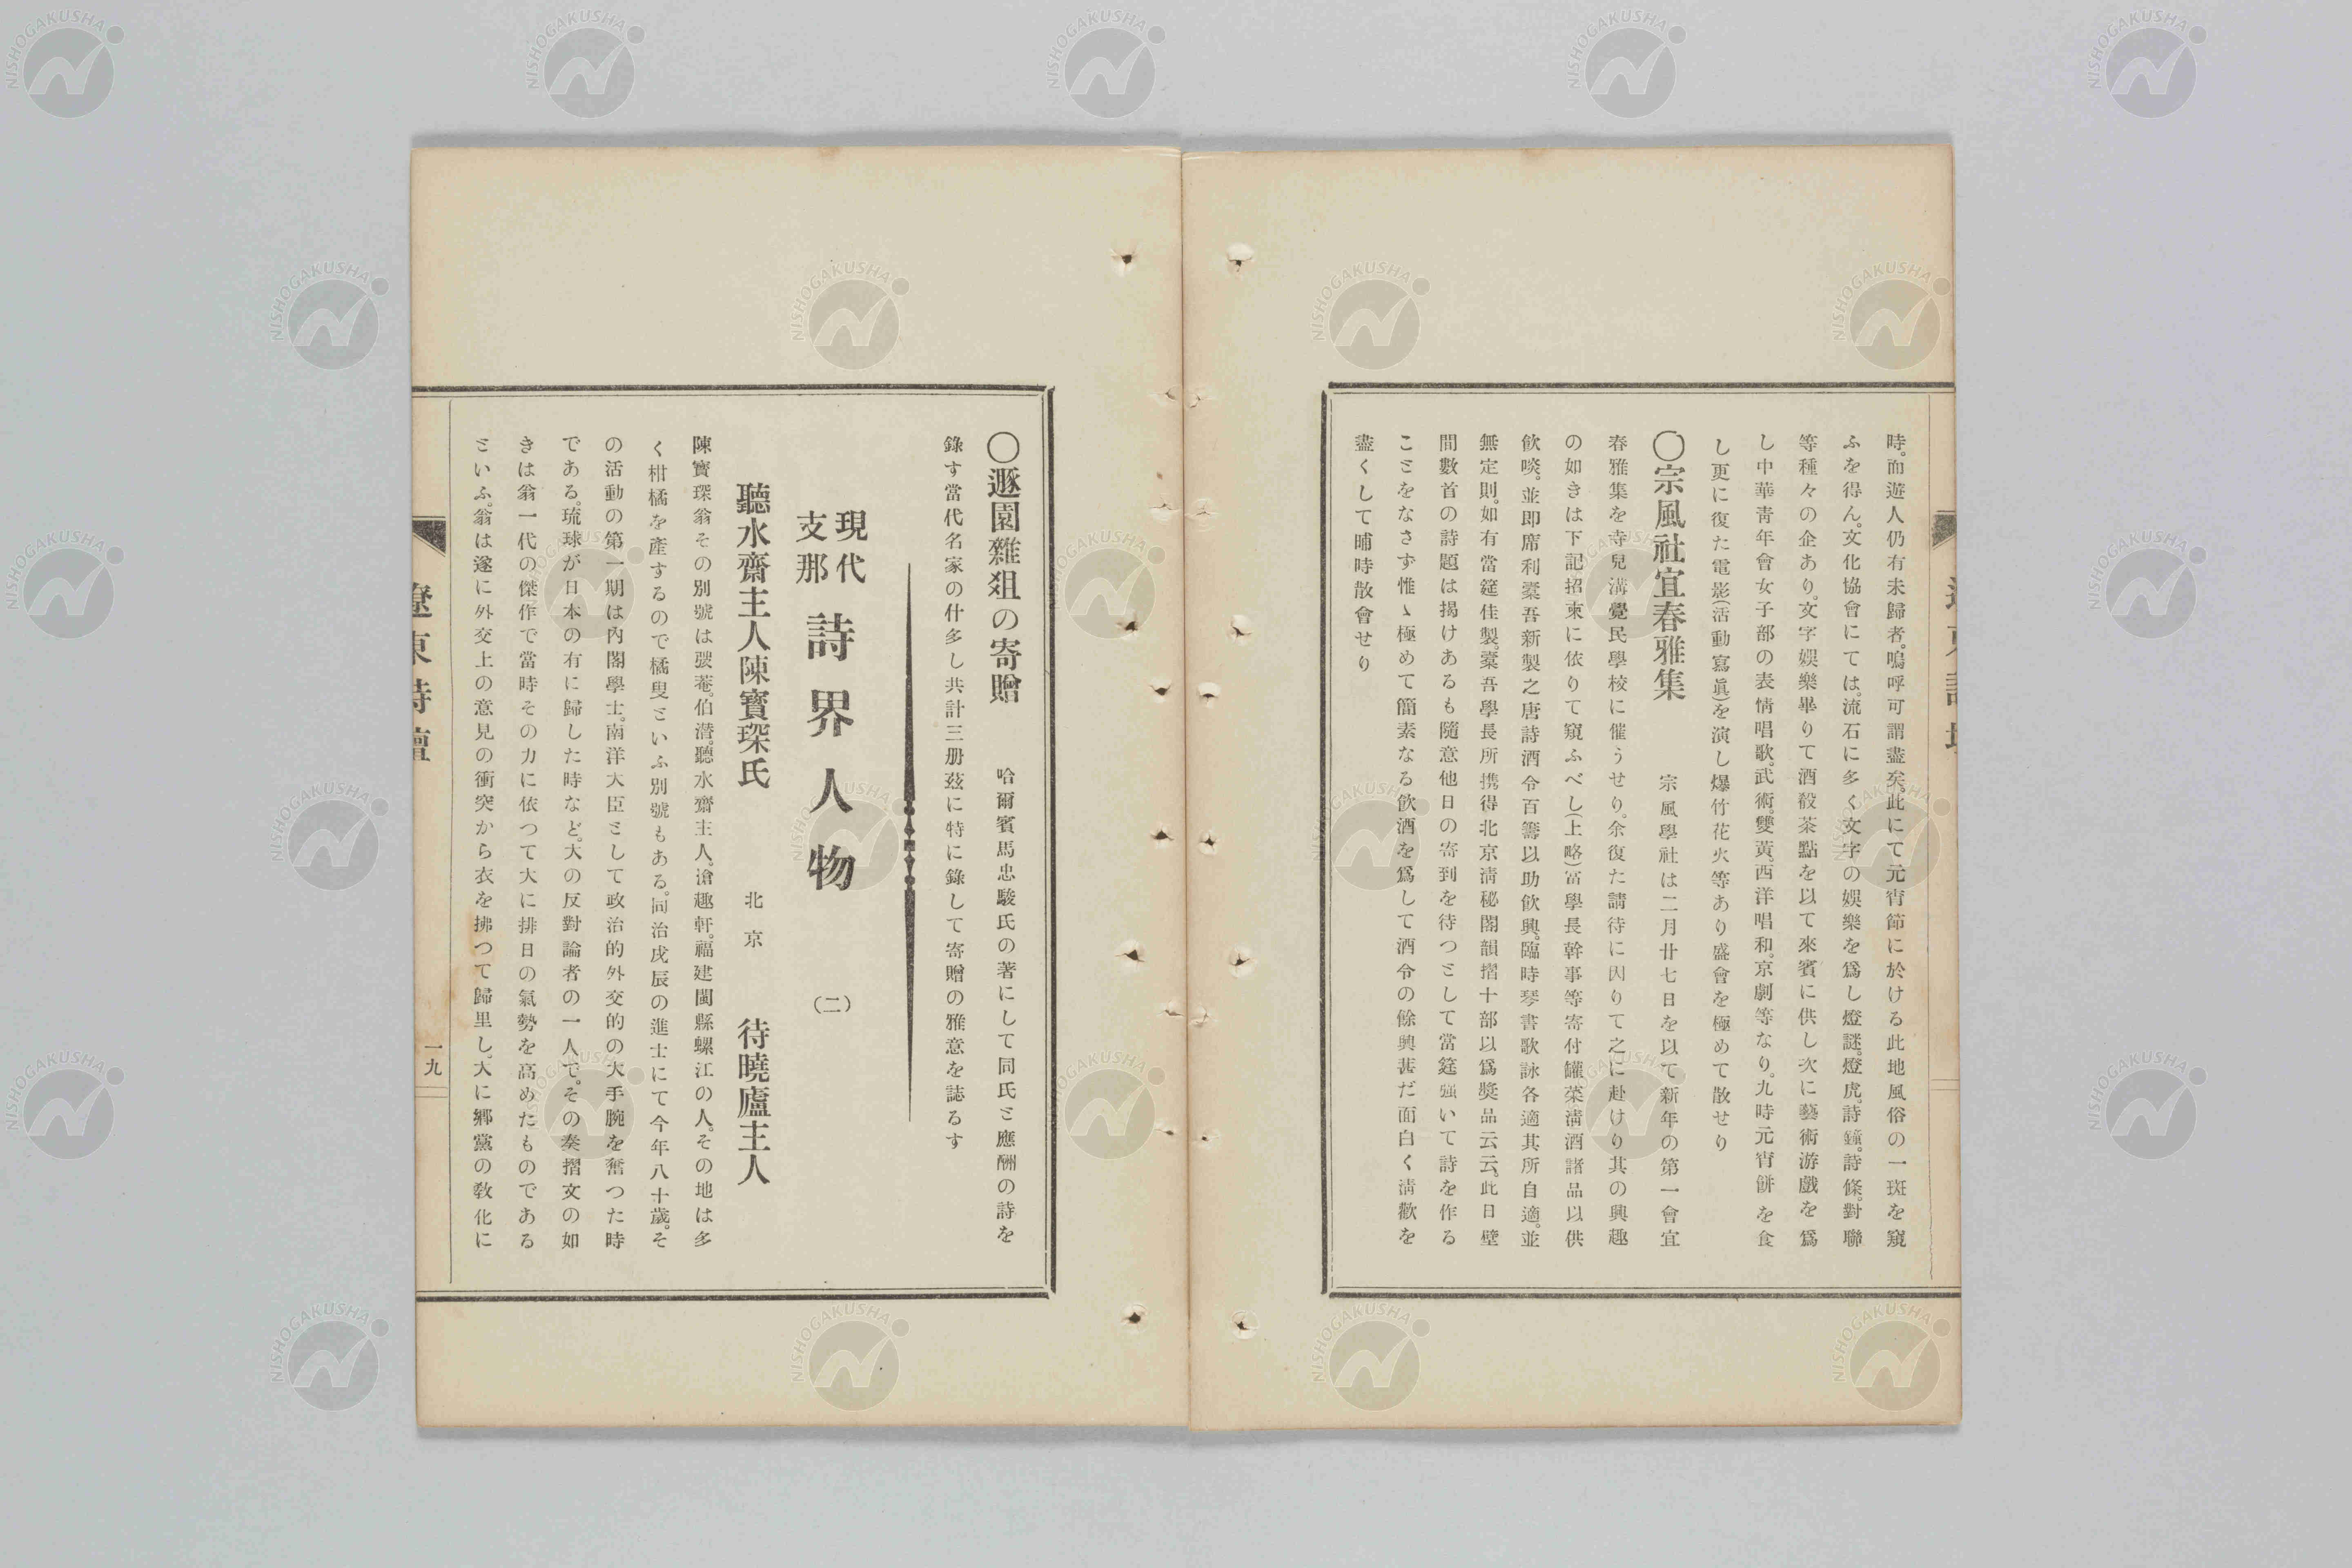 時。而遊人仍有未歸者。嗚呼可謂盡矣。此にて元宵節に於ける此地風俗の一斑を窺
ふを得ん。文化協會にては。流石に多く文字の娯樂を爲し燈謎。燈虎。詩鐘。詩條。對聯
等種々の企あり。文字娯樂畢りて酒殽茶點を以て來賓に供し次に藝術游戲を爲
し中華靑年會女子部の表情唱歌。武術。雙黃。西洋唱和。京劇等なり。九時元宵餅を食
し更に復た電影(活動寫眞)を演し爆竹花火等あり盛會を極めて散せり
〇宗風社宜春雅集　宗風學社は二月廿七日を以て新年の第一會宜
春雅集を寺兒溝覺民學校に催うせり。余復た請待に因りて之に赴けり其の興趣
の如きは下記招柬に依りて窺ふべし(上略)富學長幹事等寄付罐菜淸酒諸品以供
飮啖。並即席利稾吾新製之唐詩酒令百籌以助飮興。臨時琴書歌詠各適其所自適。並
無定則。如有當筵佳製。稾吾學長所携得北京淸秘閣韻摺十部以爲奬品云云。此日壁
間數首の詩題は揭けあるも隨意他日の寄到を待つとして當筵强いて詩を作る
ことをなさず惟〻極めて簡素なる飮酒を爲して酒令の餘興甚だ面白く淸歡を
盡くして晡時散會せり
〇遯園雜俎の寄贈　哈爾賓馬忠駿氏の著にして同氏と應酬の詩を
錄す當代名家の什多し共計三册茲に特に錄して寄贈の雅意を誌るす
現代支那 詩界人物 (二)
聽水齋主人陳寶琛氏　北京　待曉廬主人
陳寶琛翁その別號は弢菴。伯潛。聽水齋主人。滄趣軒。福建閩縣螺江の人。その地は多
く柑橘を產するので橘叟といふ別號もある。同治戊辰の進士にて今年八十歲。そ
の活動の第一期は內閣學士。南洋大臣として政治的外交的の大手腕を奮つた時
である。琉球が日本の有に歸した時など。大の反對論者の一人で。その奏摺文の如
きは翁一代の傑作で當時その力に依つて大に排日の氣勢を高めたものである
といふ。翁は遂に外交上の意見の衝突から衣を拂つて歸里し。大に鄕黨の敎化に
遼東詩壇
一九